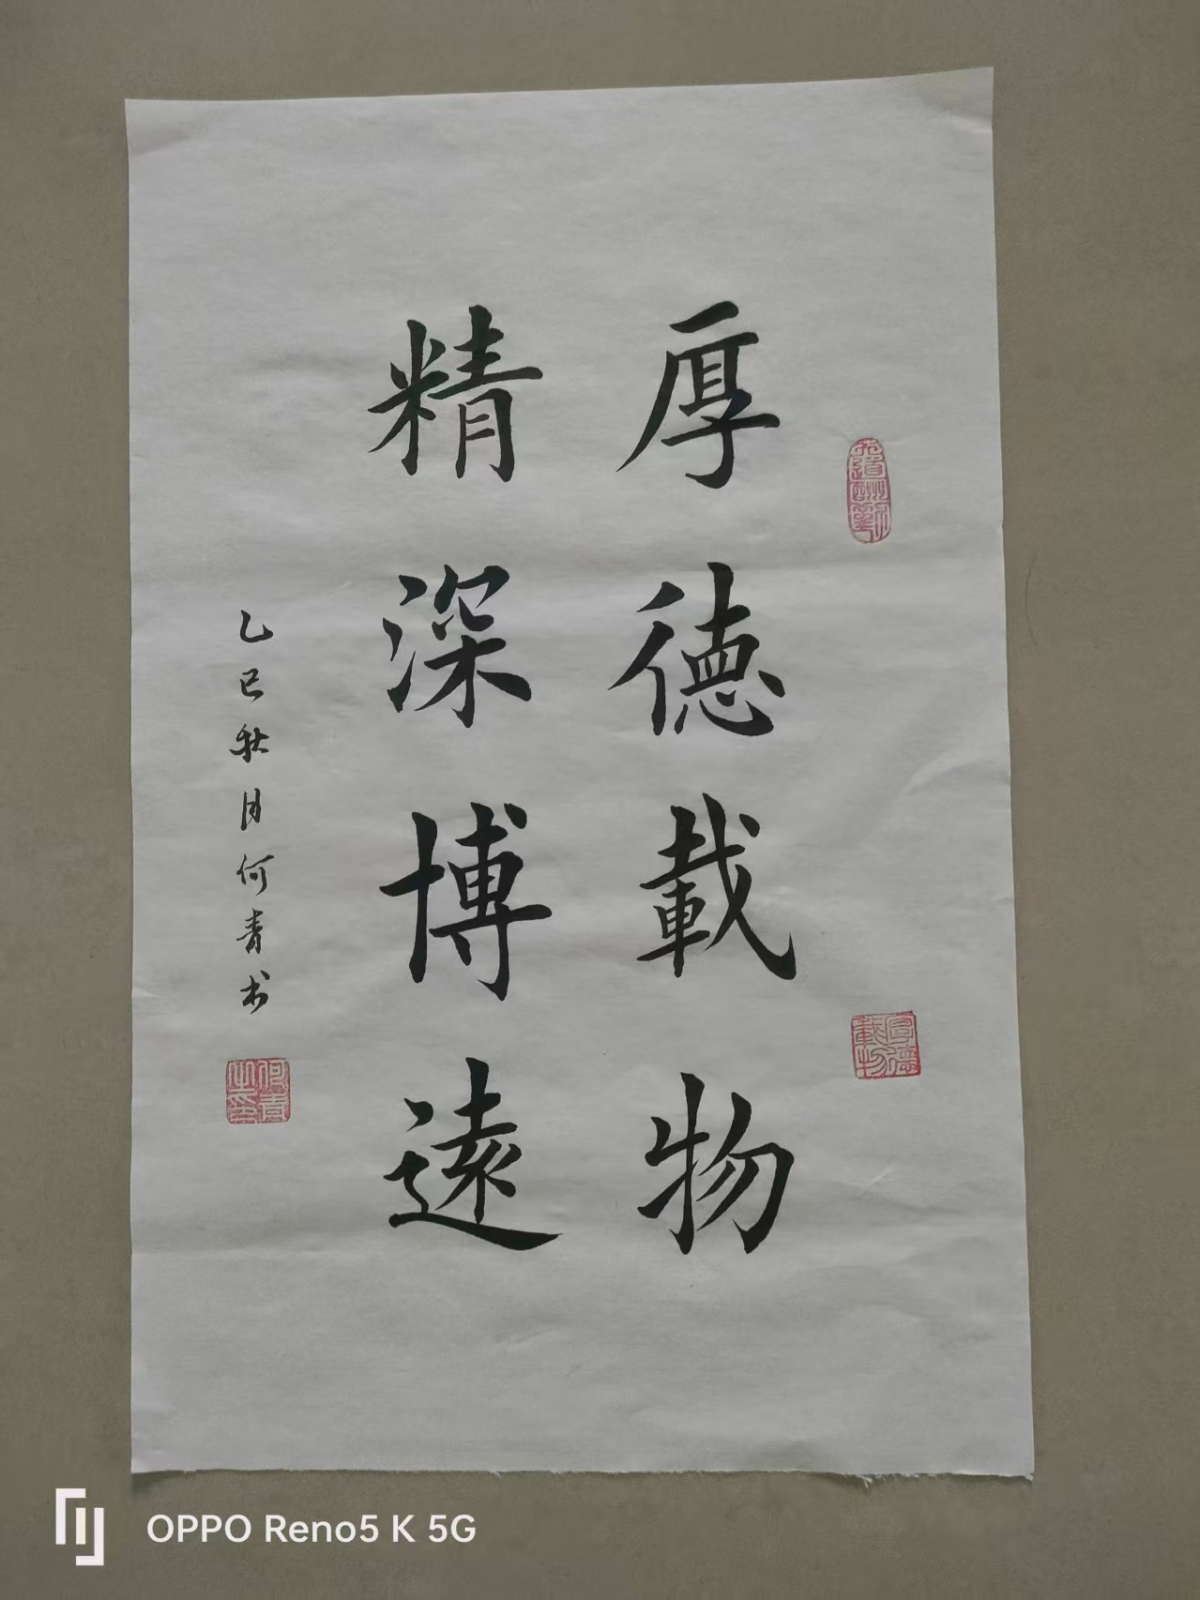 厚德載物
精深博遠
乙巳秋月何青书
天道酬勤
厚德載物
何青之印
OPPO Reno5 K 5G